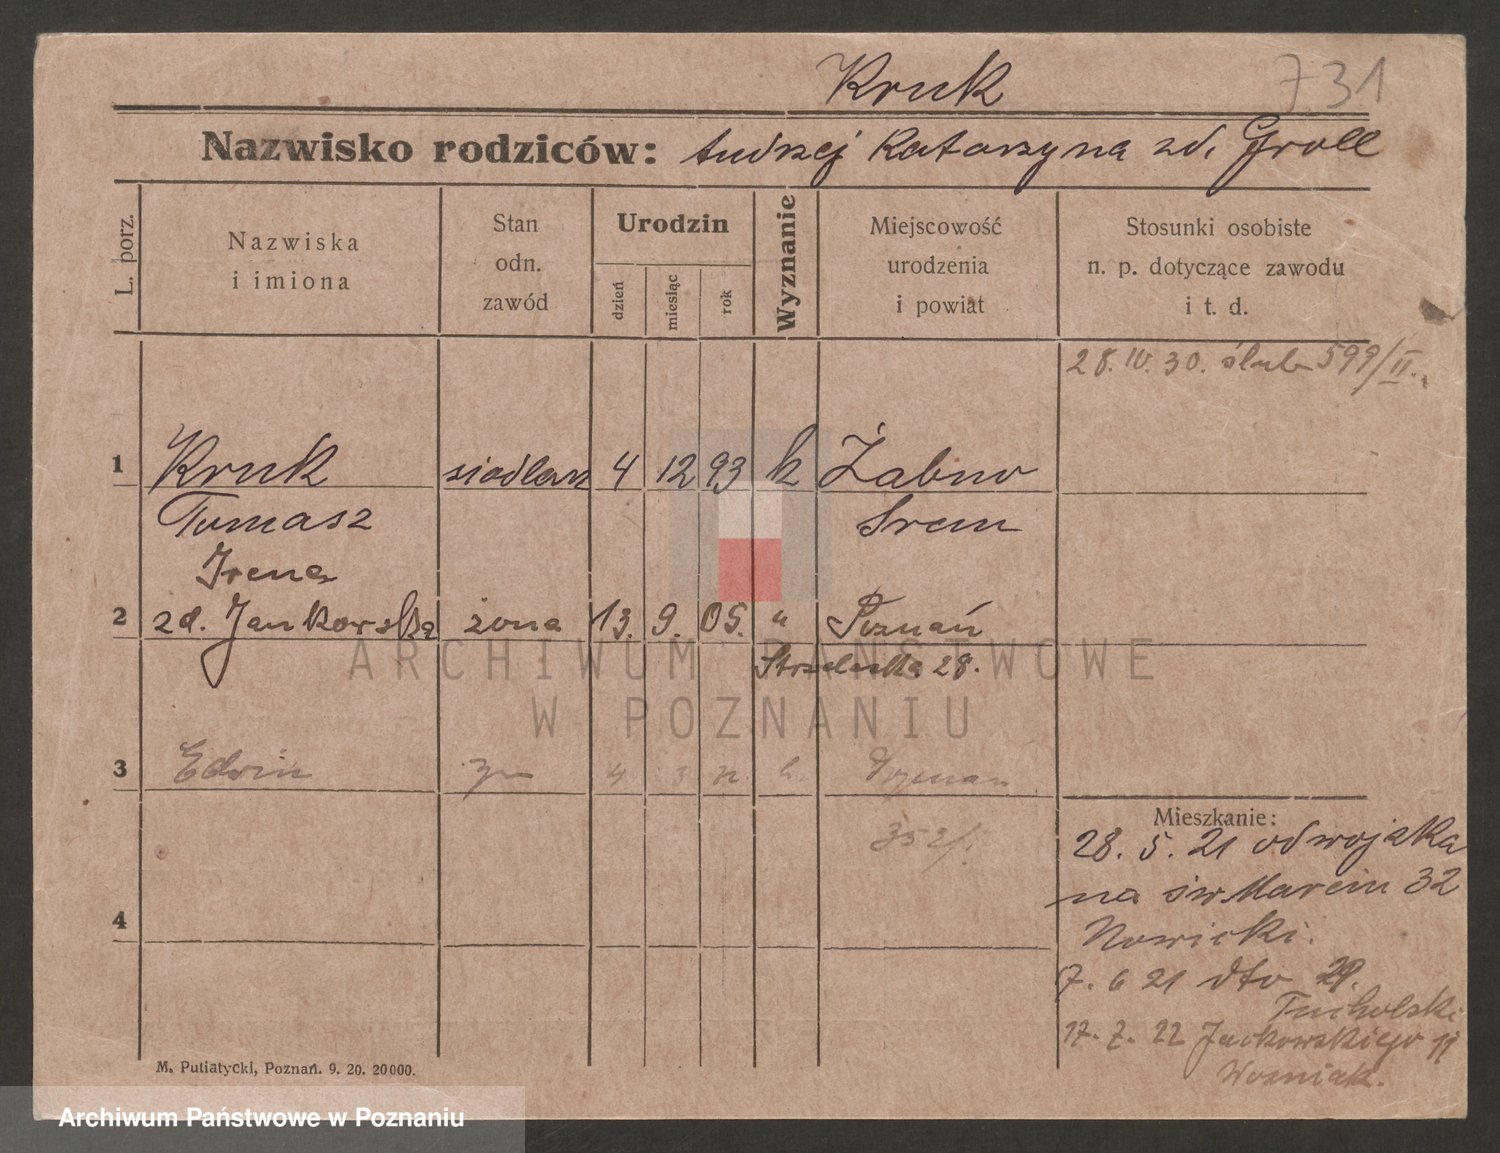 Kruk
731
Nazwisko rodziców: Andrzej Katarzyna zd. Groll
L. porz.
Nazwiska
i imiona
Stan
odn.
zawód
Urodzin
dzień
miesiąc
rok
Wyznanie
Miejscowość
urodzenia
i powiat
Stosunki osobiste
n. p. dotyczące zawodu
i t. d.
28. IV. 30. ślub 599/II.
1 Kruk siodlarz 4 12 93 k Żabno
Tomasz Śrem
Irena
2 zd. Jankowska żona 13. 9. 05. " Poznań
Strzelecka 28.
3 Edwin 4 3 k. Poznań
352/
4
Mieszkanie:
28. 5. 21 od wojaka
na św Marcin 32
Nowicki.
7. 6 21 dto 29.
Tucholski
17. 7. 22 Jackowskiego 11
Woźniak.
M. Putiatycki, Poznań. 9. 20. 20000.
ARCHIWUM PAŃSTWOWE
W POZNANIU
Archiwum Państwowe w Poznaniu